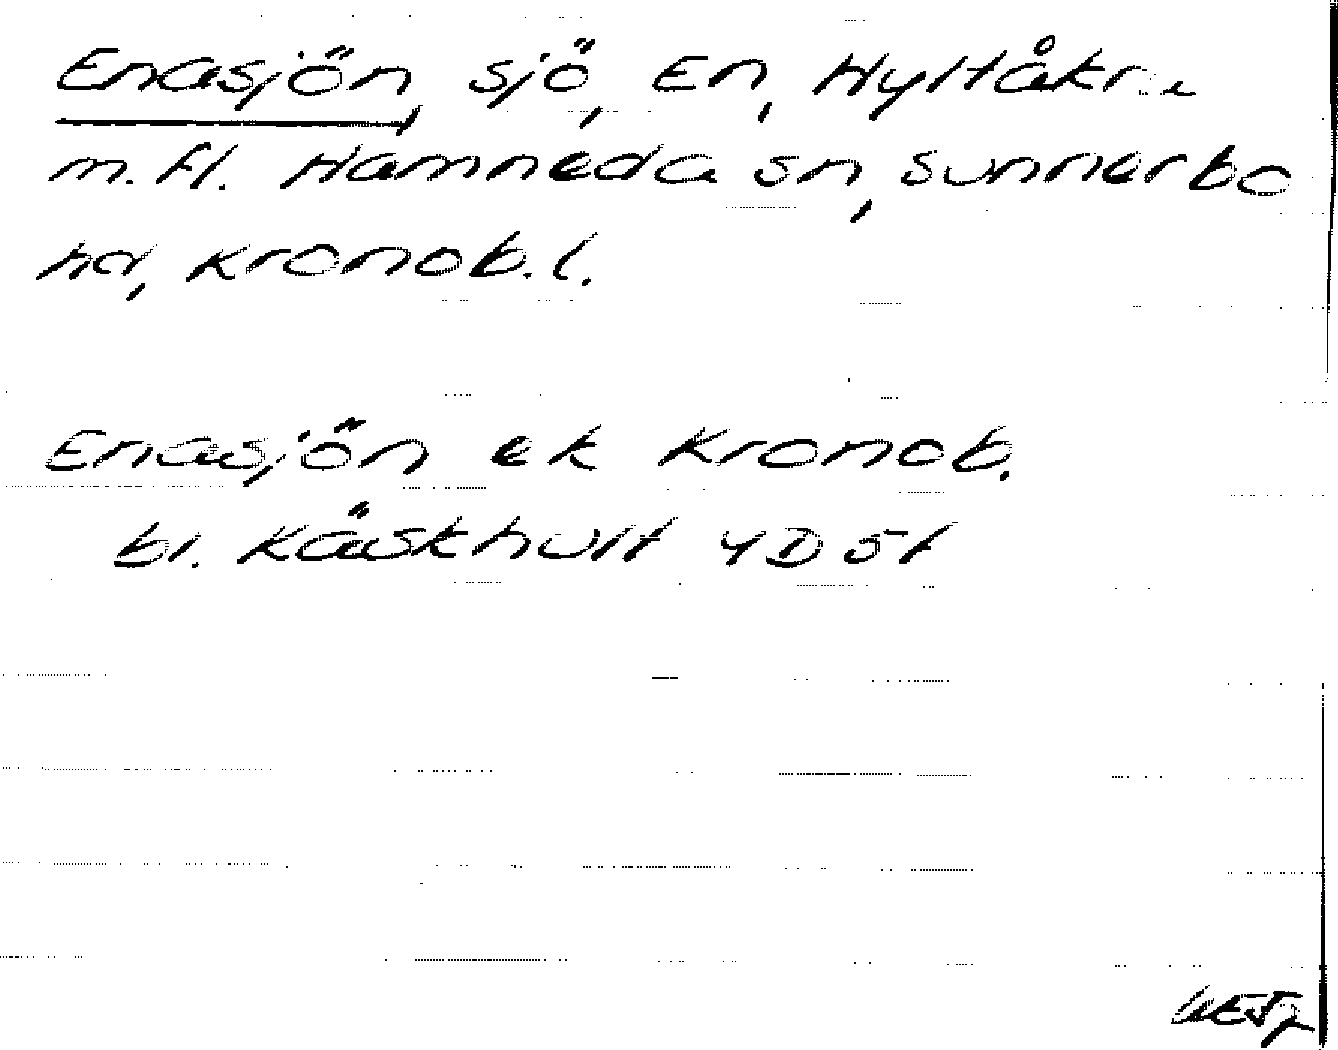 Enasjön, sjö, En, Hyltåkra
m.fl. Hamneda sn, Sunnerbo
hd, Kronob. l.
Enasjön ek Kronob.
bl. Kåskhult 4D5f